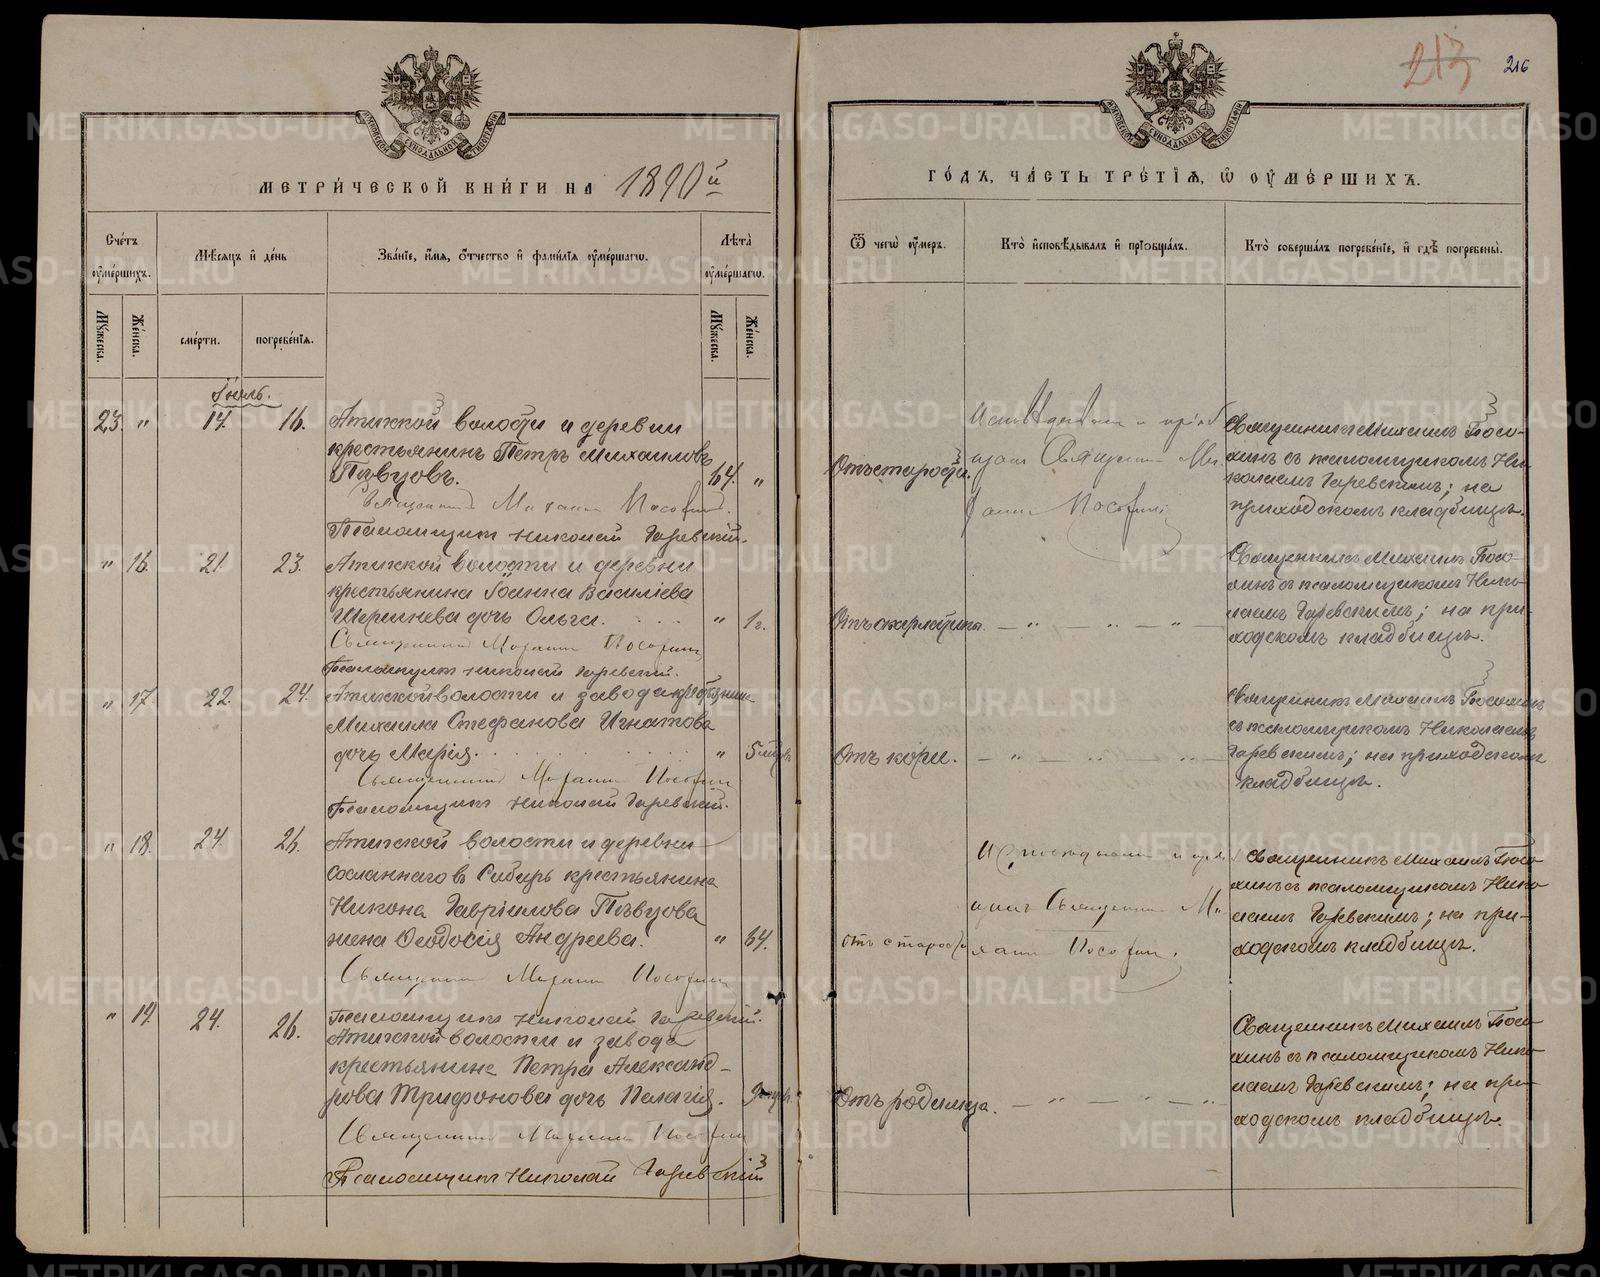 213
216
МЕТРИ́ЧЕСКОЙ КНИ́ГИ НА 1890й
ГО́ДЪ, ЧА́СТЬ ТРЕ́ТІѦ, Ѡ ОУМЕ́РШИХЪ.
Счетъ оумершихъ.
Мѣсяцъ и день
Званіе, имя, отчество и фамилія оумершагѡ.
Лѣта оумершагѡ.
Ѿ чегѡ оумеръ.
Кто исповѣдывалъ и пріобщалъ.
Кто совершалъ погребеніе, и гдѣ погребены.
Мужеска.
Женска.
смерти.
погребенія.
Мужеска.
Женска.
Іюль.
23. " 14. 16.
Атижской волости и деревни
крестьянинъ Петръ Михаиловъ
Пѣвцовъ. 64. "
Священникъ Михаилъ Посохинъ.
Псаломщикъ Николай Гаревскій.
Отъ старости.
Исповѣдывалъ и пріоб
щалъ Священникъ Ми
хаилъ Посохинъ
Священникъ Михаилъ Посо-
хинъ съ псаломщикомъ Ни-
колаемъ Гаревскимъ; на
приходскомъ кладбищѣ.
" 16. 21. 23.
Атижской волости и деревни
крестьянина Іоанна Василіева
Ширшнева дочь Ольга. " 1г.
Священникъ Михаилъ Посохинъ
Псаломщикъ Николай Гаревскій.
Отъ скарлатины. — " — " — " —
Священникъ Михаилъ Посо-
хинъ съ псаломщикомъ Нико-
лаемъ Гаревскимъ; на при-
ходскомъ кладбищѣ.
" 17. 22. 24.
Атижской волости и завода крестьянина
Михаила Стефанова Игнатова
дочь Марія. " 5 мѣсяц.
Священникъ Михаилъ Посохинъ
Псаломщикъ Николай Гаревскій.
Отъ кори. — " — " — " —
Священникъ Михаилъ Посохинъ
съ псаломщикомъ Николаемъ
Гаревскимъ; на приходскомъ
кладбищѣ.
" 18. 24. 26.
Атижской волости и деревни
сосланнаго въ Сибирь крестьянина
Никона Гавріилова Пѣвцова
жена Ѳеодосія Андреева. " 64.
Священникъ Михаилъ Посохинъ
Псаломщикъ Николай Гаревскій.
Отъ старости
Исповѣдывалъ и пріоб
щалъ Священникъ Ми
хаилъ Посохинъ.
Священникъ Михаилъ Посо-
хинъ съ псаломщикомъ Нико-
лаемъ Гаревскимъ; на при-
ходскомъ кладбищѣ.
" 19. 24. 26.
Атижской волости и завода
крестьянина Петра Александ-
рова Трифонова дочь Пелагія.
Священникъ Михаилъ Посохинъ
Псаломщикъ Николай Гаревскій
Отъ родимца. — " — " — " —
Священникъ Михаилъ Посо-
хинъ съ псаломщикомъ Нико-
лаемъ Гаревскимъ; на при-
ходскомъ кладбищѣ.
METRIKI.GASO-URAL.RU